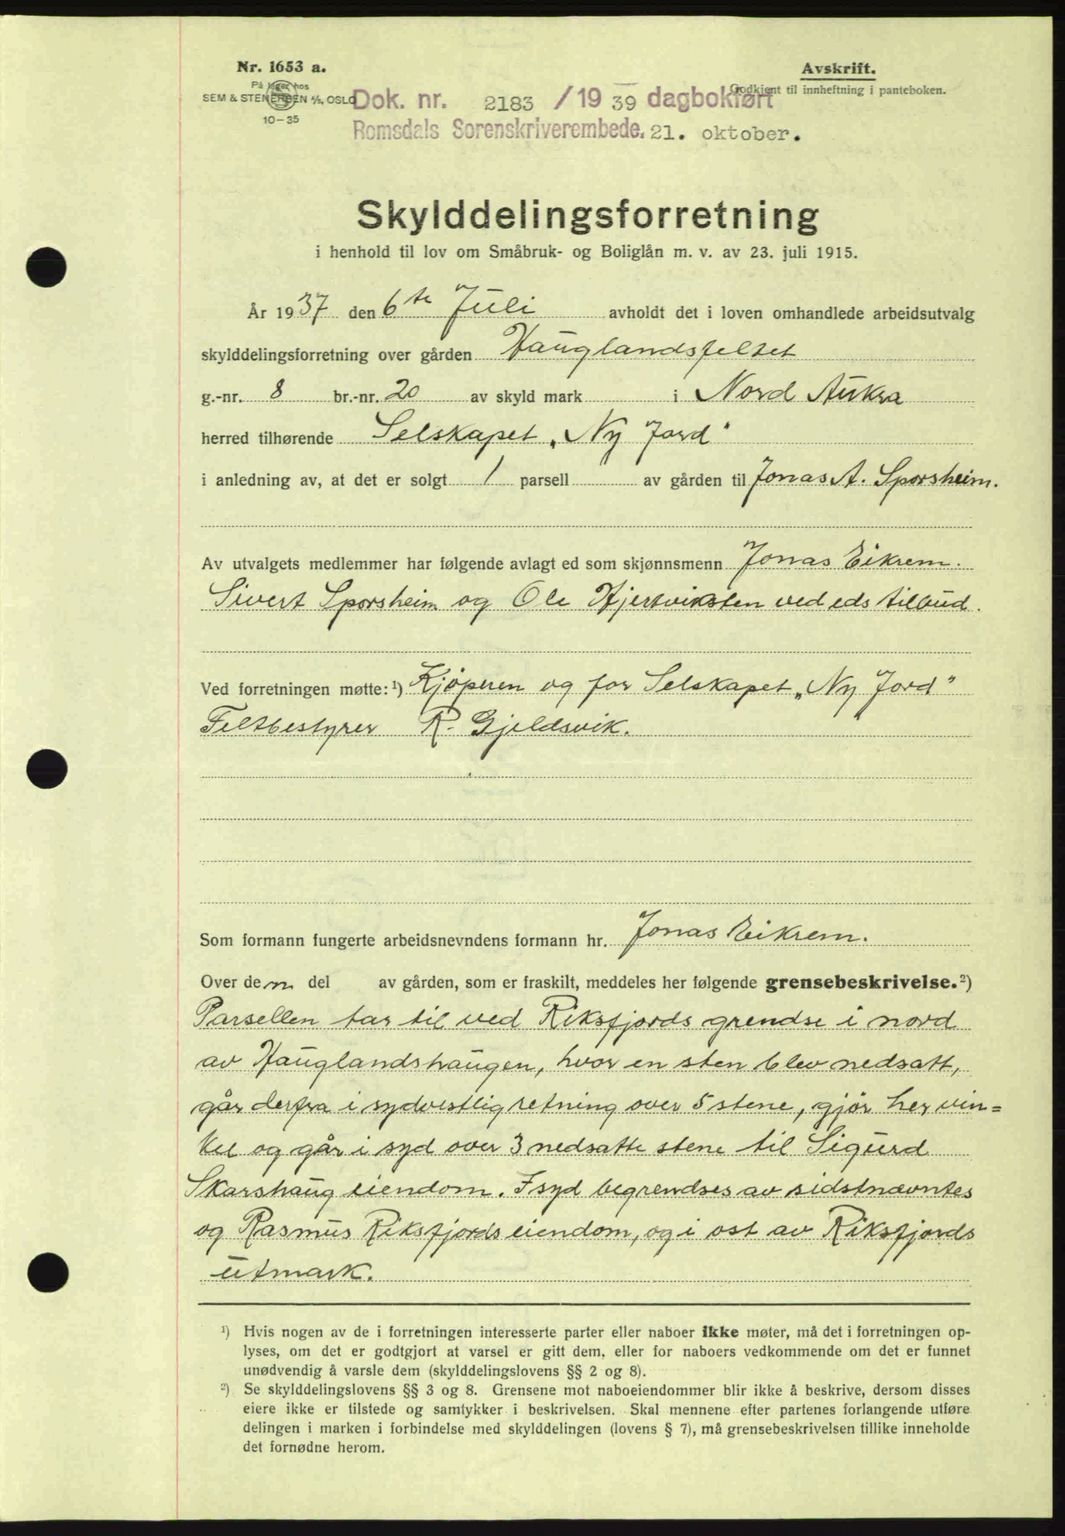 Nr. 1653 a.
På lager hos
SEM & STENERSEN A/S, OSLO
10-35
Avskrift.
Godkjent til innheftning i panteboken.
Dok. nr. 2183 /19 39 dagbokført
Romsdals Sorenskriverembede. 21. oktober.
Skylddelingsforretning
i henhold til lov om Småbruk- og Boliglån m. v. av 23. juli 1915.
År 1937 den 6te Juli avholdt det i loven omhandlede arbeidsutvalg
skylddelingsforretning over gården Hauglandsfeltet
g.-nr. 8 br.-nr. 20 av skyld mark i Nord Aukra
herred tilhørende Selskapet „Ny Jord"
i anledning av, at det er solgt 1 parsell av gården til Jonas A. Sporsheim.
Av utvalgets medlemmer har følgende avlagt ed som skjønnsmenn Jonas Eikrem.
Sivert Sporsheim og Ole Hjertviksten ved eds tilbud.
Ved forretningen møtte: ¹) Kjøperen og for Selskapet „Ny Jord"
Feltbestyrer R. Gjeldsvik.
Som formann fungerte arbeidsnevndens formann hr. Jonas Eikrem.
Over den del av gården, som er fraskilt, meddeles her følgende grensebeskrivelse. ²)
Parsellen tar til ved Riksfjords grendse i nord
av Hauglandshaugen, hvor en sten blev nedsatt,
går derfra i sydvestlig retning over 5 stene, gjør her vin=
kel og går i syd over 3 nedsatte stene til Sigurd
Skarshaug eiendom. I syd begrendses av sidstnævntes
og Rasmus Riksfjords eiendom, og i ost av Riksfjords
utmark.
¹) Hvis nogen av de i forretningen interesserte parter eller naboer ikke møter, må det i forretningen op-
lyses, om det er godtgjort at varsel er gitt dem, eller for naboers vedkommende om det er funnet
unødvendig å varsle dem (skylddelingslovens §§ 2 og 8).
²) Se skylddelingslovens §§ 3 og 8. Grensene mot naboeiendommer blir ikke å beskrive, dersom disses
eiere ikke er tilstede og samtykker i beskrivelsen. Skal mennene efter partenes forlangende utføre
delingen i marken i forbindelse med skylddelingen (lovens § 7), må grensebeskrivelsen tillike inneholde
det fornødne herom.